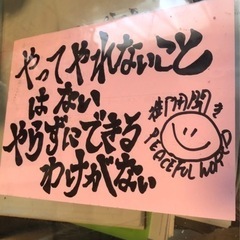 やってやれないこと
はない
やらずにできる
わけがない
PEACEFUL WORLD